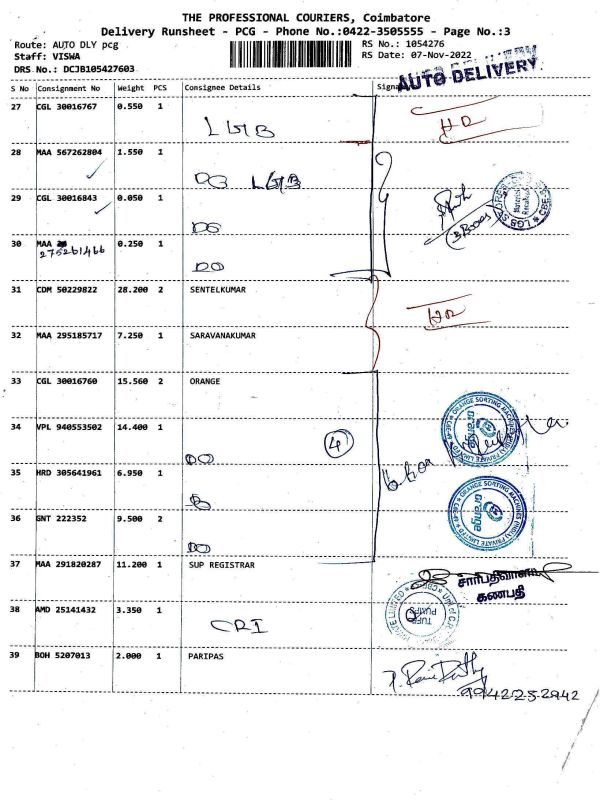 THE PROFESSIONAL COURIERS, Coimbatore
Delivery Runsheet - PCG - Phone No.:0422-3505555 - Page No.:3
Route: AUTO DLY pcg
RS No.: 1054276
Staff: VISWA
RS Date: 07-Nov-2022
DRS No.: DCJB105427603
AUTO DELIVERY
S No Consignment No Weight PCS Consignee Details
27 CGL 30016767 0.550 1
LGB
28 MAA 567262804 1.550 1
DO LGB
29 CGL 30016843 0.050 1
DO
3 Boxes
30 MAA 0.250 1
275261466
DO
31 CDM 50229822 28.200 2 SENTELKUMAR
32 MAA 295185717 7.250 1 SARAVANAKUMAR
33 CGL 30016760 15.560 2 ORANGE
ORANGE SORTING MACHINES (INDIA) PRIVATE LIMITED
orange
34 VPL 940553502 14.400 1
4
DO
35 HRD 305641961 6.950 1
DO
ORANGE SORTING MACHINES (INDIA) PRIVATE LIMITED
orange
36 GNT 222352 9.500 2
DO
37 MAA 291820287 11.200 1 SUP REGISTRAR
சார்பதிவாளர்
கணபதி
38 AMD 25141432 3.350 1
CRI
39 BOH 5207013 2.000 1 PARIPAS
9942252942